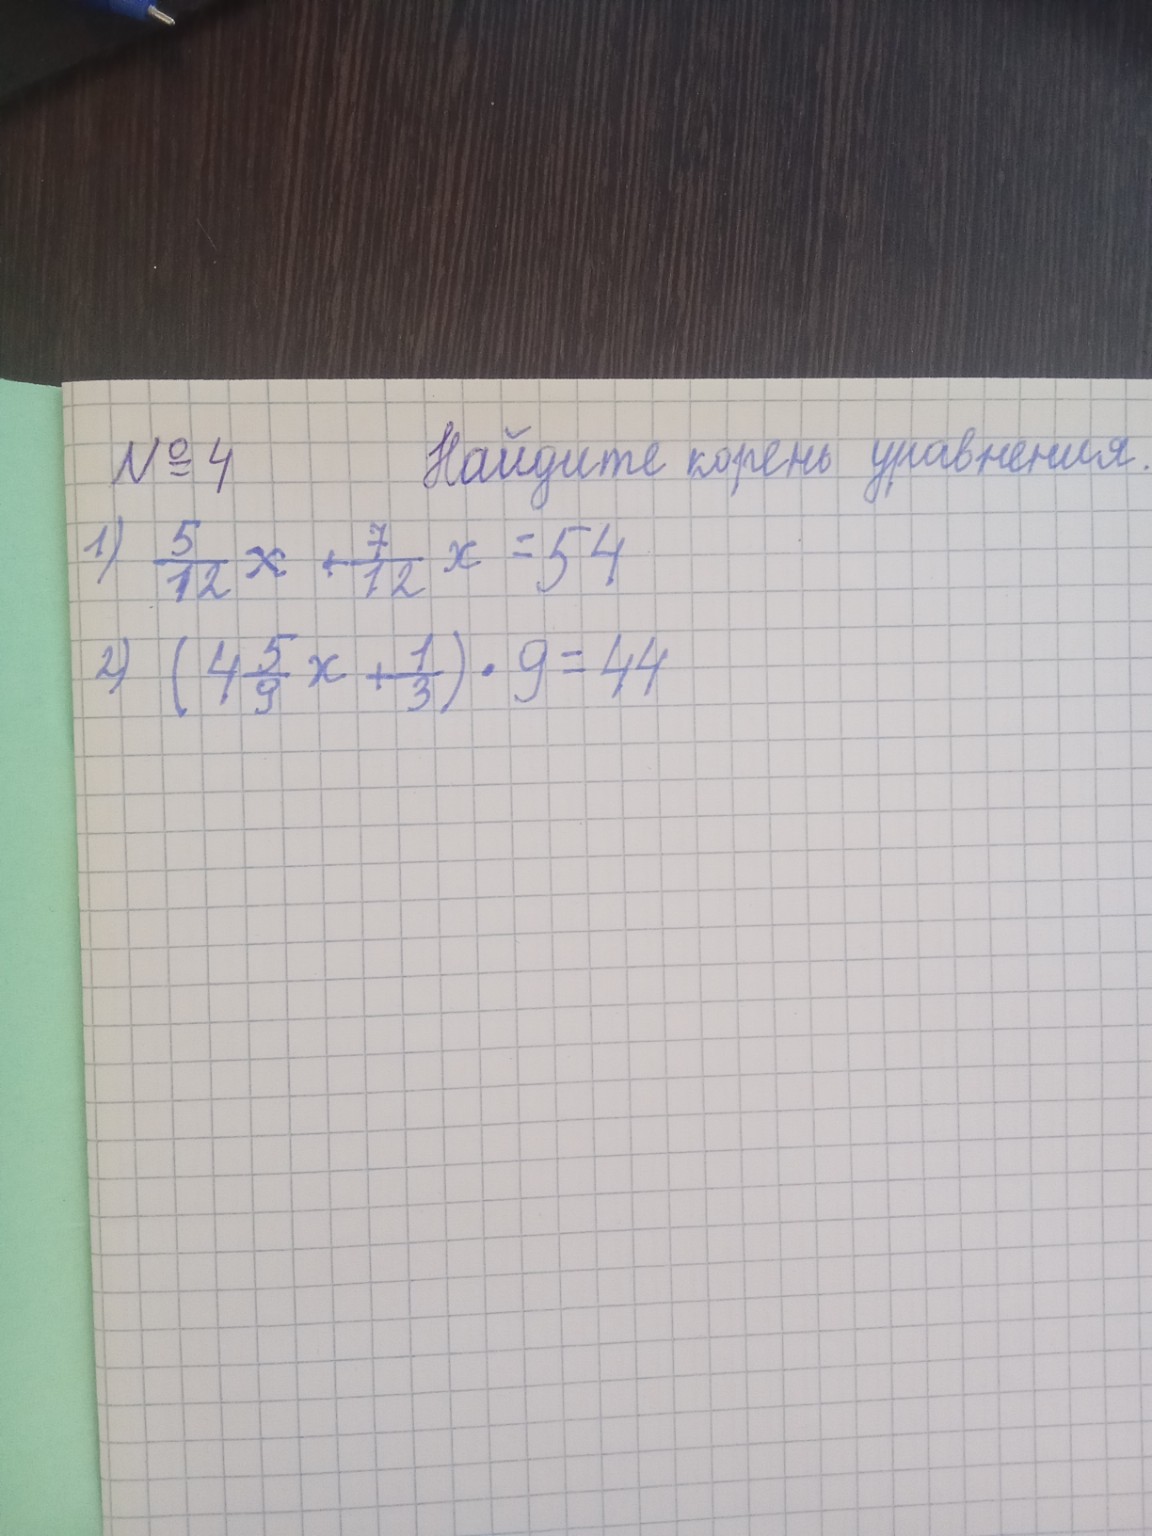 № 4 Найдите корень уравнения.
1) 5/12 x + 7/12 x = 54
2) (4 5/9 x + 1/3) · 9 = 44